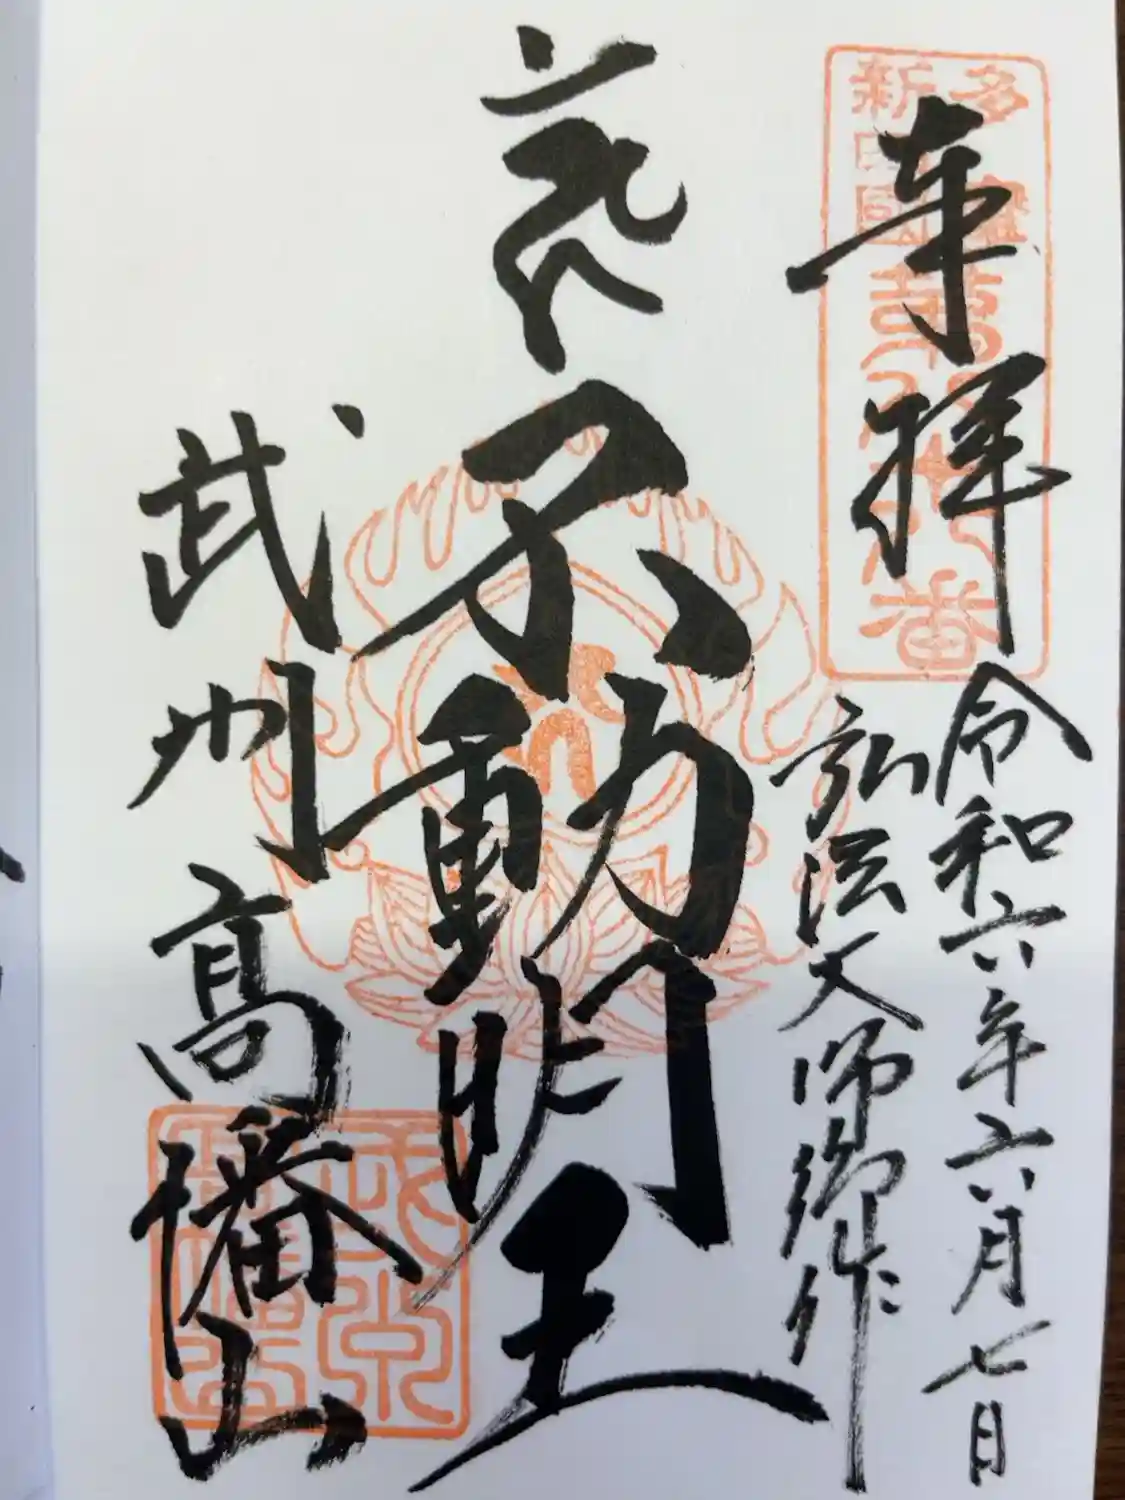 奉拝
令和六年六月七日
弘法大師御作
不動明王
武州
高幡山
多摩
新四国
八十八
番